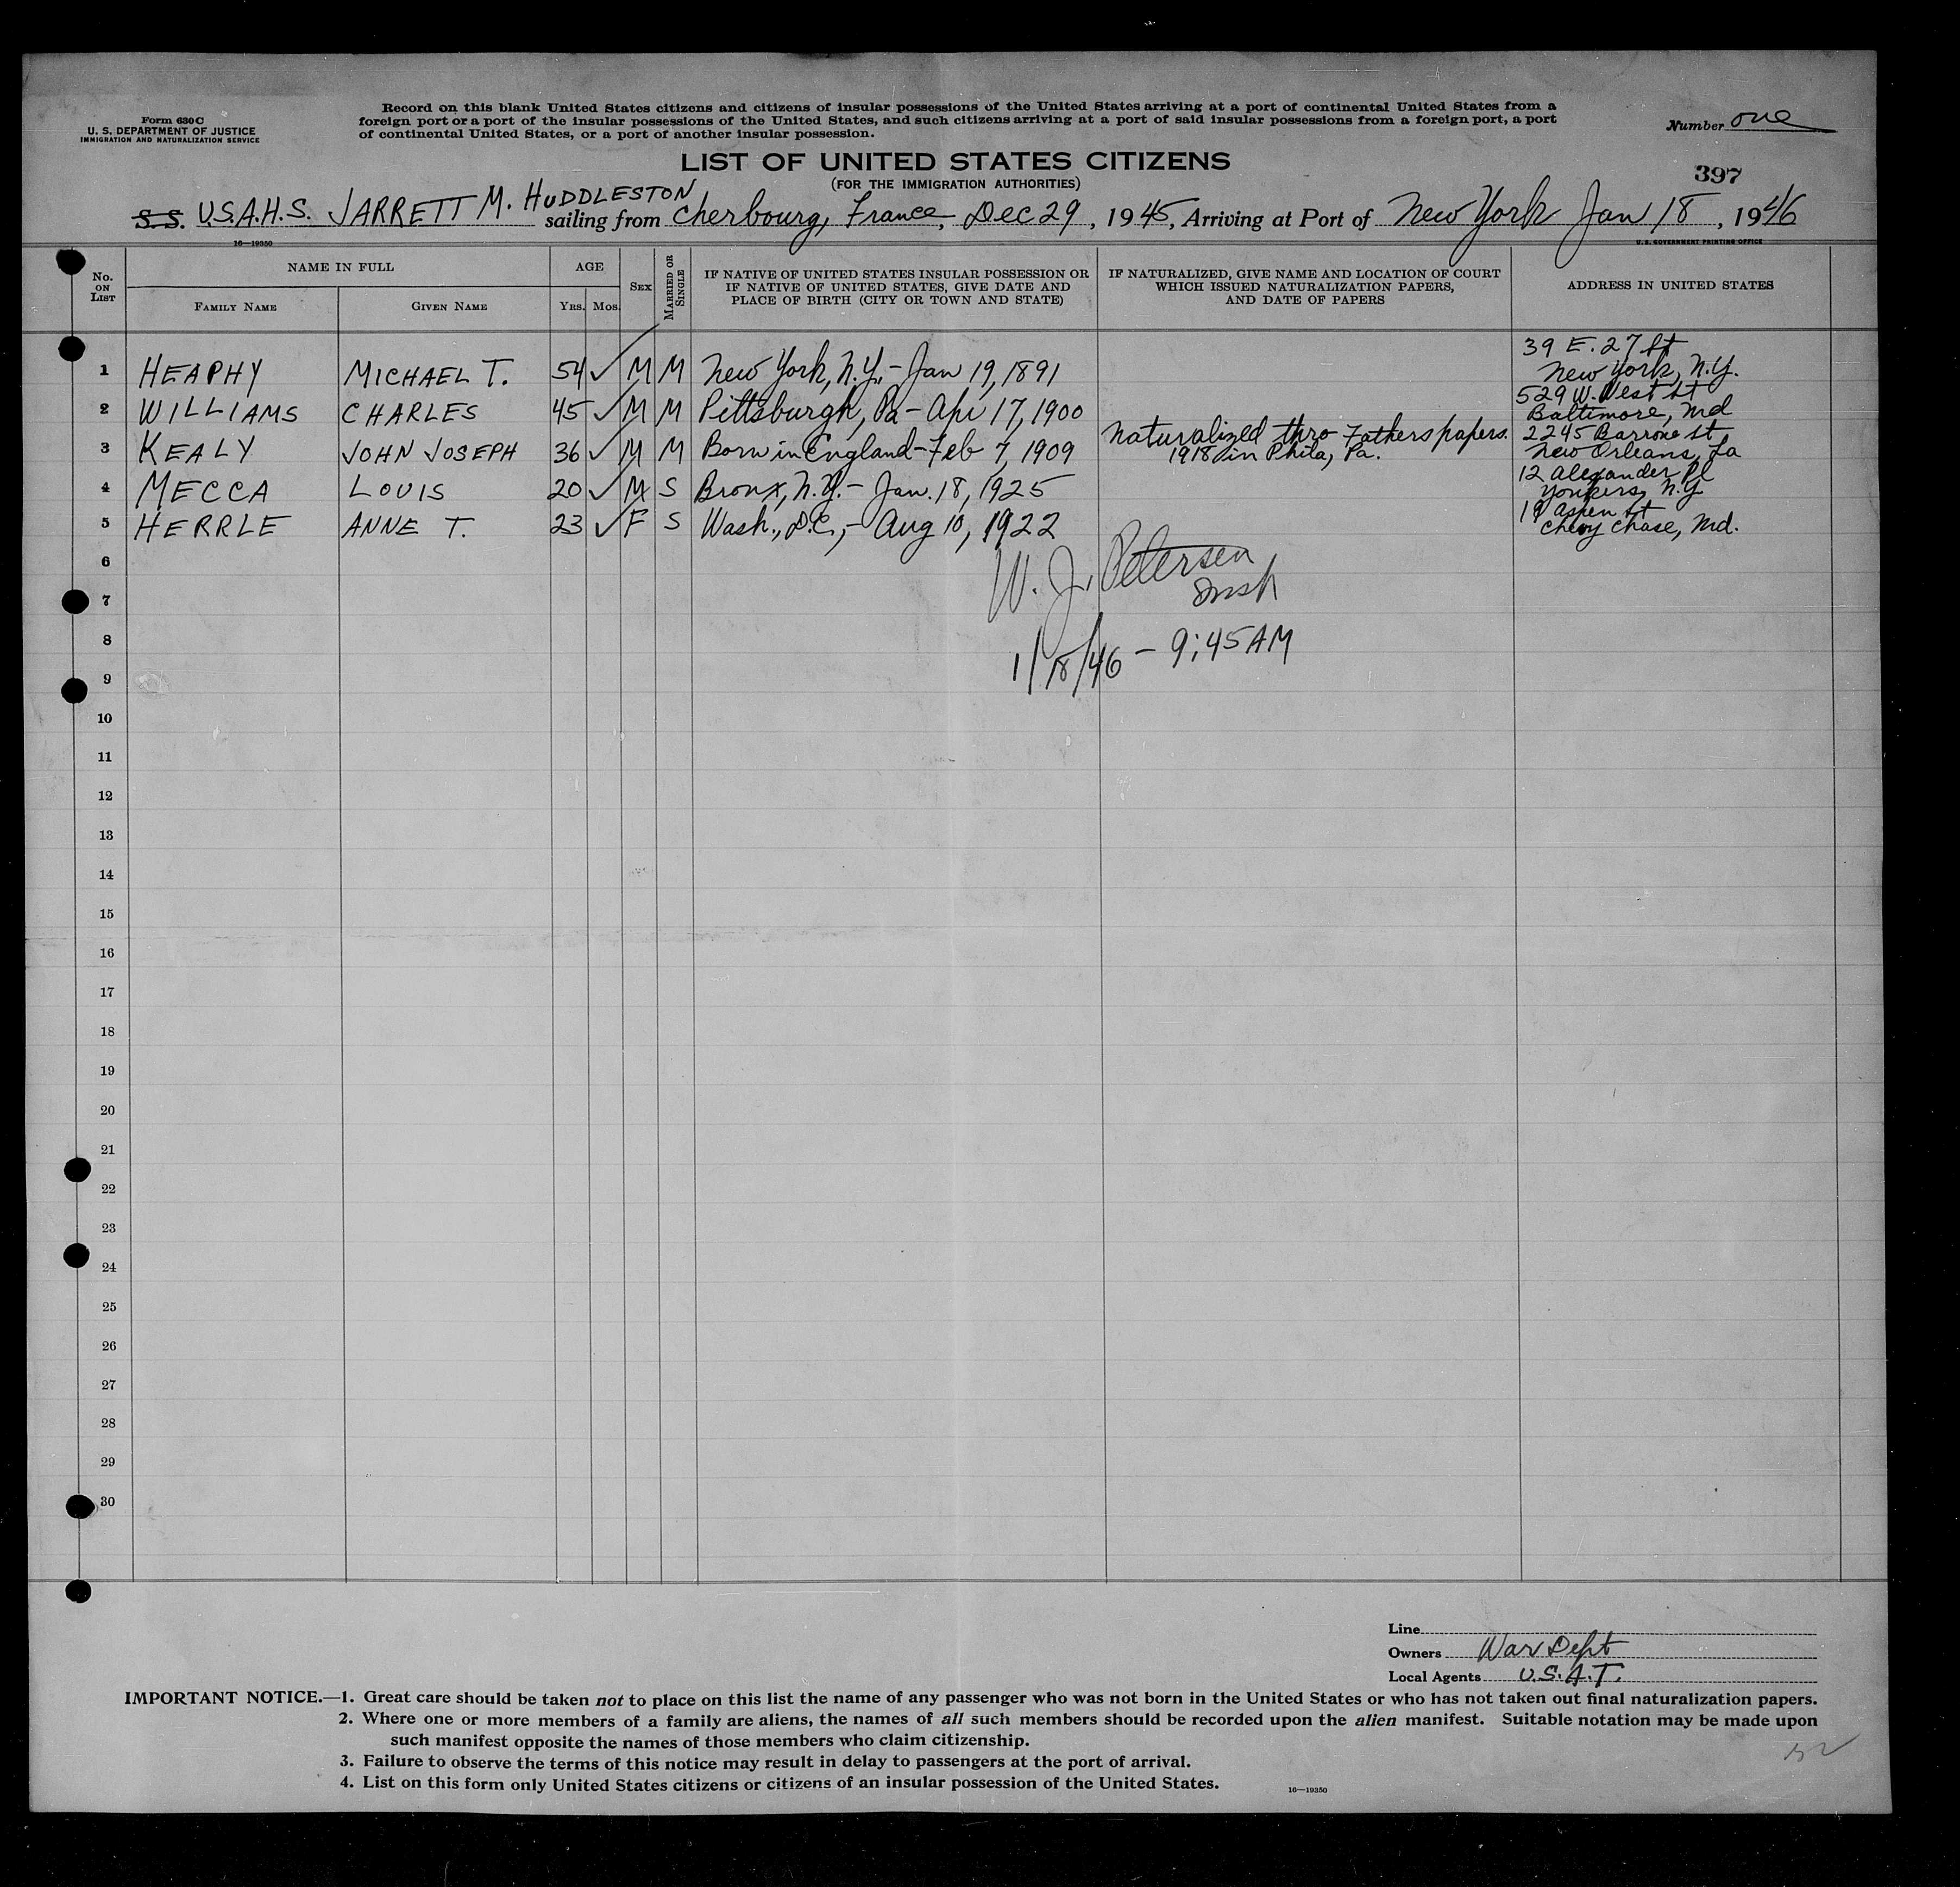 Form 630 C
U. S. DEPARTMENT OF JUSTICE
IMMIGRATION AND NATURALIZATION SERVICE
Record on this blank United States citizens and citizens of insular possessions of the United States arriving at a port of continental United States from a
foreign port or a port of the insular possessions of the United States, and such citizens arriving at a port of said insular possessions from a foreign port, a port
of continental United States, or a port of another insular possession.
Number one
LIST OF UNITED STATES CITIZENS
(FOR THE IMMIGRATION AUTHORITIES)
397
S.S. U.S.A.H.S. JARRETT M. HUDDLESTON sailing from Cherbourg, France, Dec 29, 1945, Arriving at Port of New York Jan 18, 1946
16—19350
U. S. GOVERNMENT PRINTING OFFICE
No. ON LIST
NAME IN FULL
FAMILY NAME
GIVEN NAME
AGE
YRS. MOS.
SEX
MARRIED OR SINGLE
IF NATIVE OF UNITED STATES INSULAR POSSESSION OR
IF NATIVE OF UNITED STATES, GIVE DATE AND
PLACE OF BIRTH (CITY OR TOWN AND STATE)
IF NATURALIZED, GIVE NAME AND LOCATION OF COURT
WHICH ISSUED NATURALIZATION PAPERS,
AND DATE OF PAPERS
ADDRESS IN UNITED STATES
1 HEAPHY MICHAEL T. 54 ✓ M M New York, N.Y. - Jan 19, 1891 39 E. 27 St
New York, N.Y.
2 WILLIAMS CHARLES 45 ✓ M M Pittsburgh, Pa - Apr 17, 1900 529 W. West St
Baltimore, Md
3 KEALY JOHN JOSEPH 36 ✓ M M Born in England - Feb 7, 1909 Naturalized thro Fathers papers. 2245 Barrone St
1918 in Phila, Pa. New Orleans, La
4 MECCA LOUIS 20 ✓ M S Bronx, N.Y. - Jan. 18, 1925 12 Alexander Pl
Yonkers, N.Y.
5 HERRLE ANNE T. 23 ✓ F S Wash., D.C., - Aug 10, 1922 19 Aspen St
Chevy Chase, Md.
6
W. J. Petersen
7
Insp
8
1/18/46 - 9:45 AM
9
10
11
12
13
14
15
16
17
18
19
20
21
22
23
24
25
26
27
28
29
30
Line
Owners War Dept
Local Agents U.S.A.T.
IMPORTANT NOTICE.—1. Great care should be taken not to place on this list the name of any passenger who was not born in the United States or who has not taken out final naturalization papers.
2. Where one or more members of a family are aliens, the names of all such members should be recorded upon the alien manifest. Suitable notation may be made upon
such manifest opposite the names of those members who claim citizenship.
3. Failure to observe the terms of this notice may result in delay to passengers at the port of arrival.
4. List on this form only United States citizens or citizens of an insular possession of the United States.
16—19350